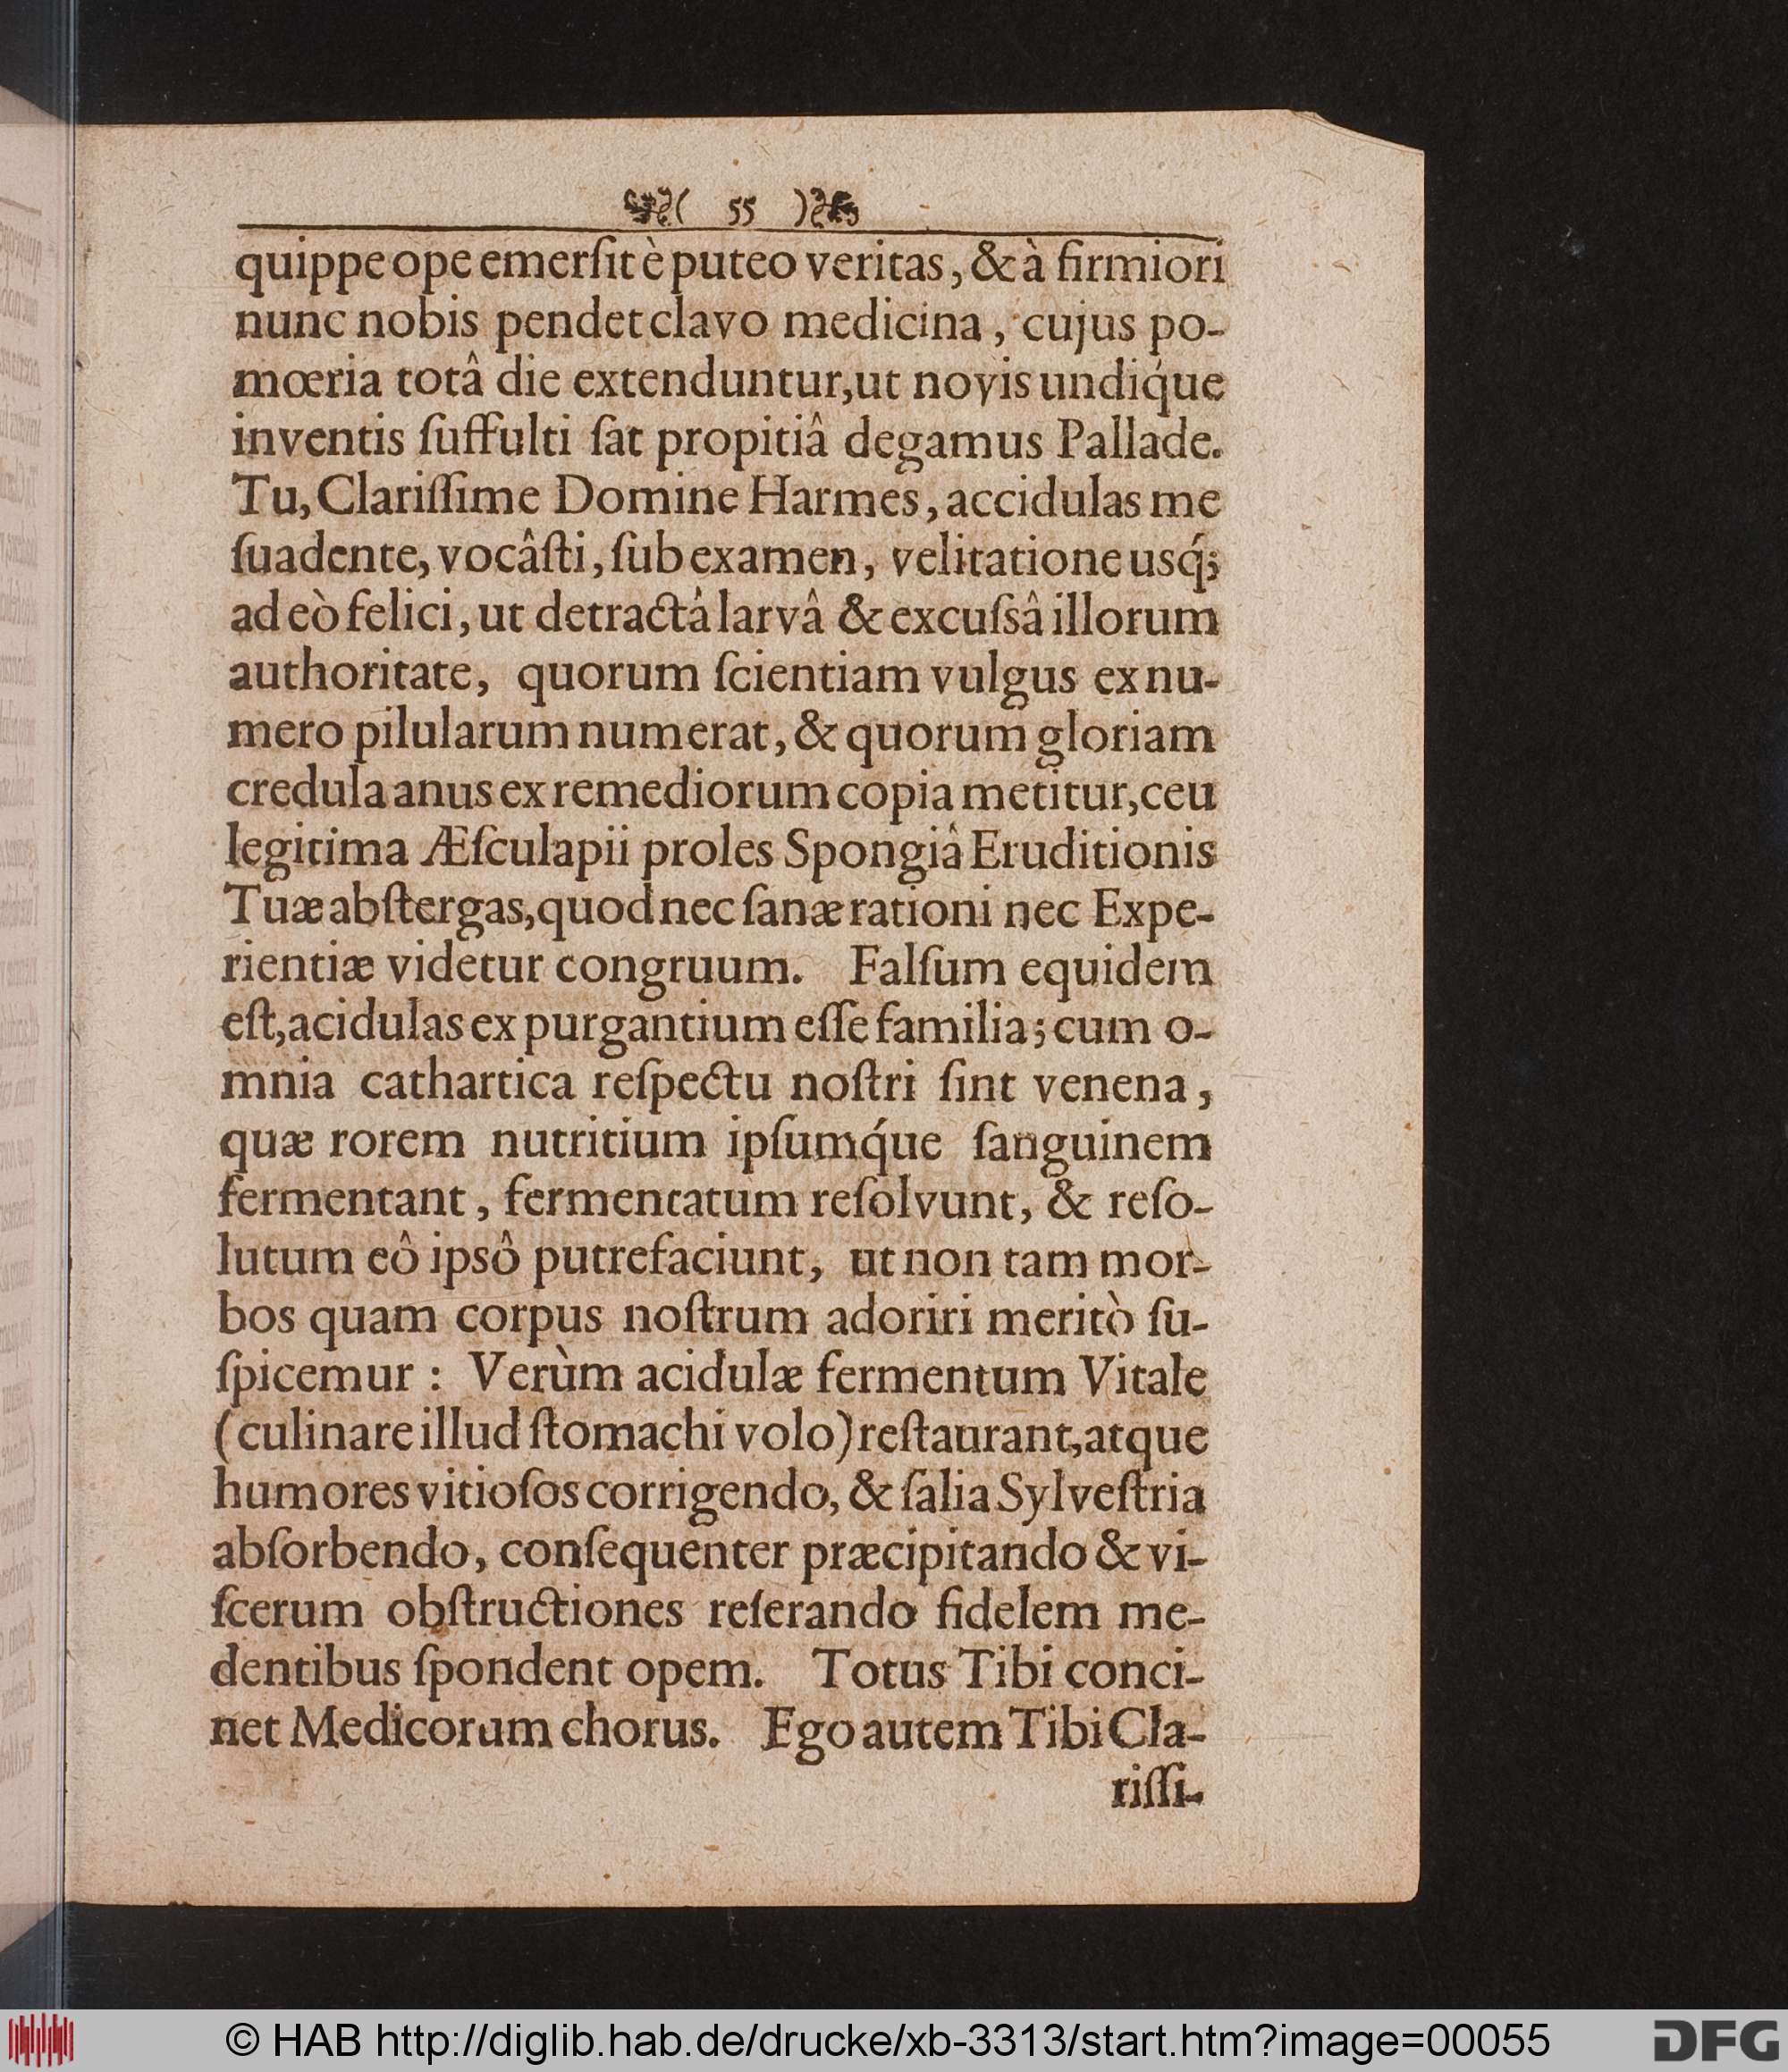 ( 55 )
quippe ope emerſit è puteo veritas, & à firmiori
nunc nobis pendet clavo medicina, cujus po-
mœria totâ die extenduntur, ut novis undiq́ue
inventis ſuffulti ſat propitiâ degamus Pallade.
Tu, Clariſſime Domine Harmes, accidulas me
ſuadente, vocâſti, ſub examen, velitatione usq́;
ad eò felici, ut detractâ larvâ & excuſsâ illorum
authoritate, quorum ſcientiam vulgus ex nu-
mero pilularum numerat, & quorum gloriam
credula anus ex remediorum copia metitur, ceu
legitima Æſculapii proles Spongiâ Eruditionis
Tuæ abſtergas, quod nec ſanæ rationi nec Expe-
rientiæ videtur congruum. Falſum equidem
eſt, acidulas ex purgantium eſſe familia; cum o-
mnia cathartica reſpectu noſtri ſint venena,
quæ rorem nutritium ipſumq́ue ſanguinem
fermentant, fermentatum reſolvunt, & reſo-
lutum eô ipsô putrefaciunt, ut non tam mor-
bos quam corpus noſtrum adoriri meritò ſu-
ſpicemur : Verùm acidulæ fermentum Vitale
(culinare illud ſtomachi volo) reſtaurant, atque
humores vitioſos corrigendo, & ſalia Sylveſtria
abſorbendo, conſequenter præcipitando & vi-
ſcerum obſtructiones reſerando fidelem me-
dentibus ſpondent opem. Totus Tibi conci-
net Medicorum chorus. Ego autem Tibi Cla-
riſſi-
© HAB http://diglib.hab.de/drucke/xb-3313/start.htm?image=00055
DFG